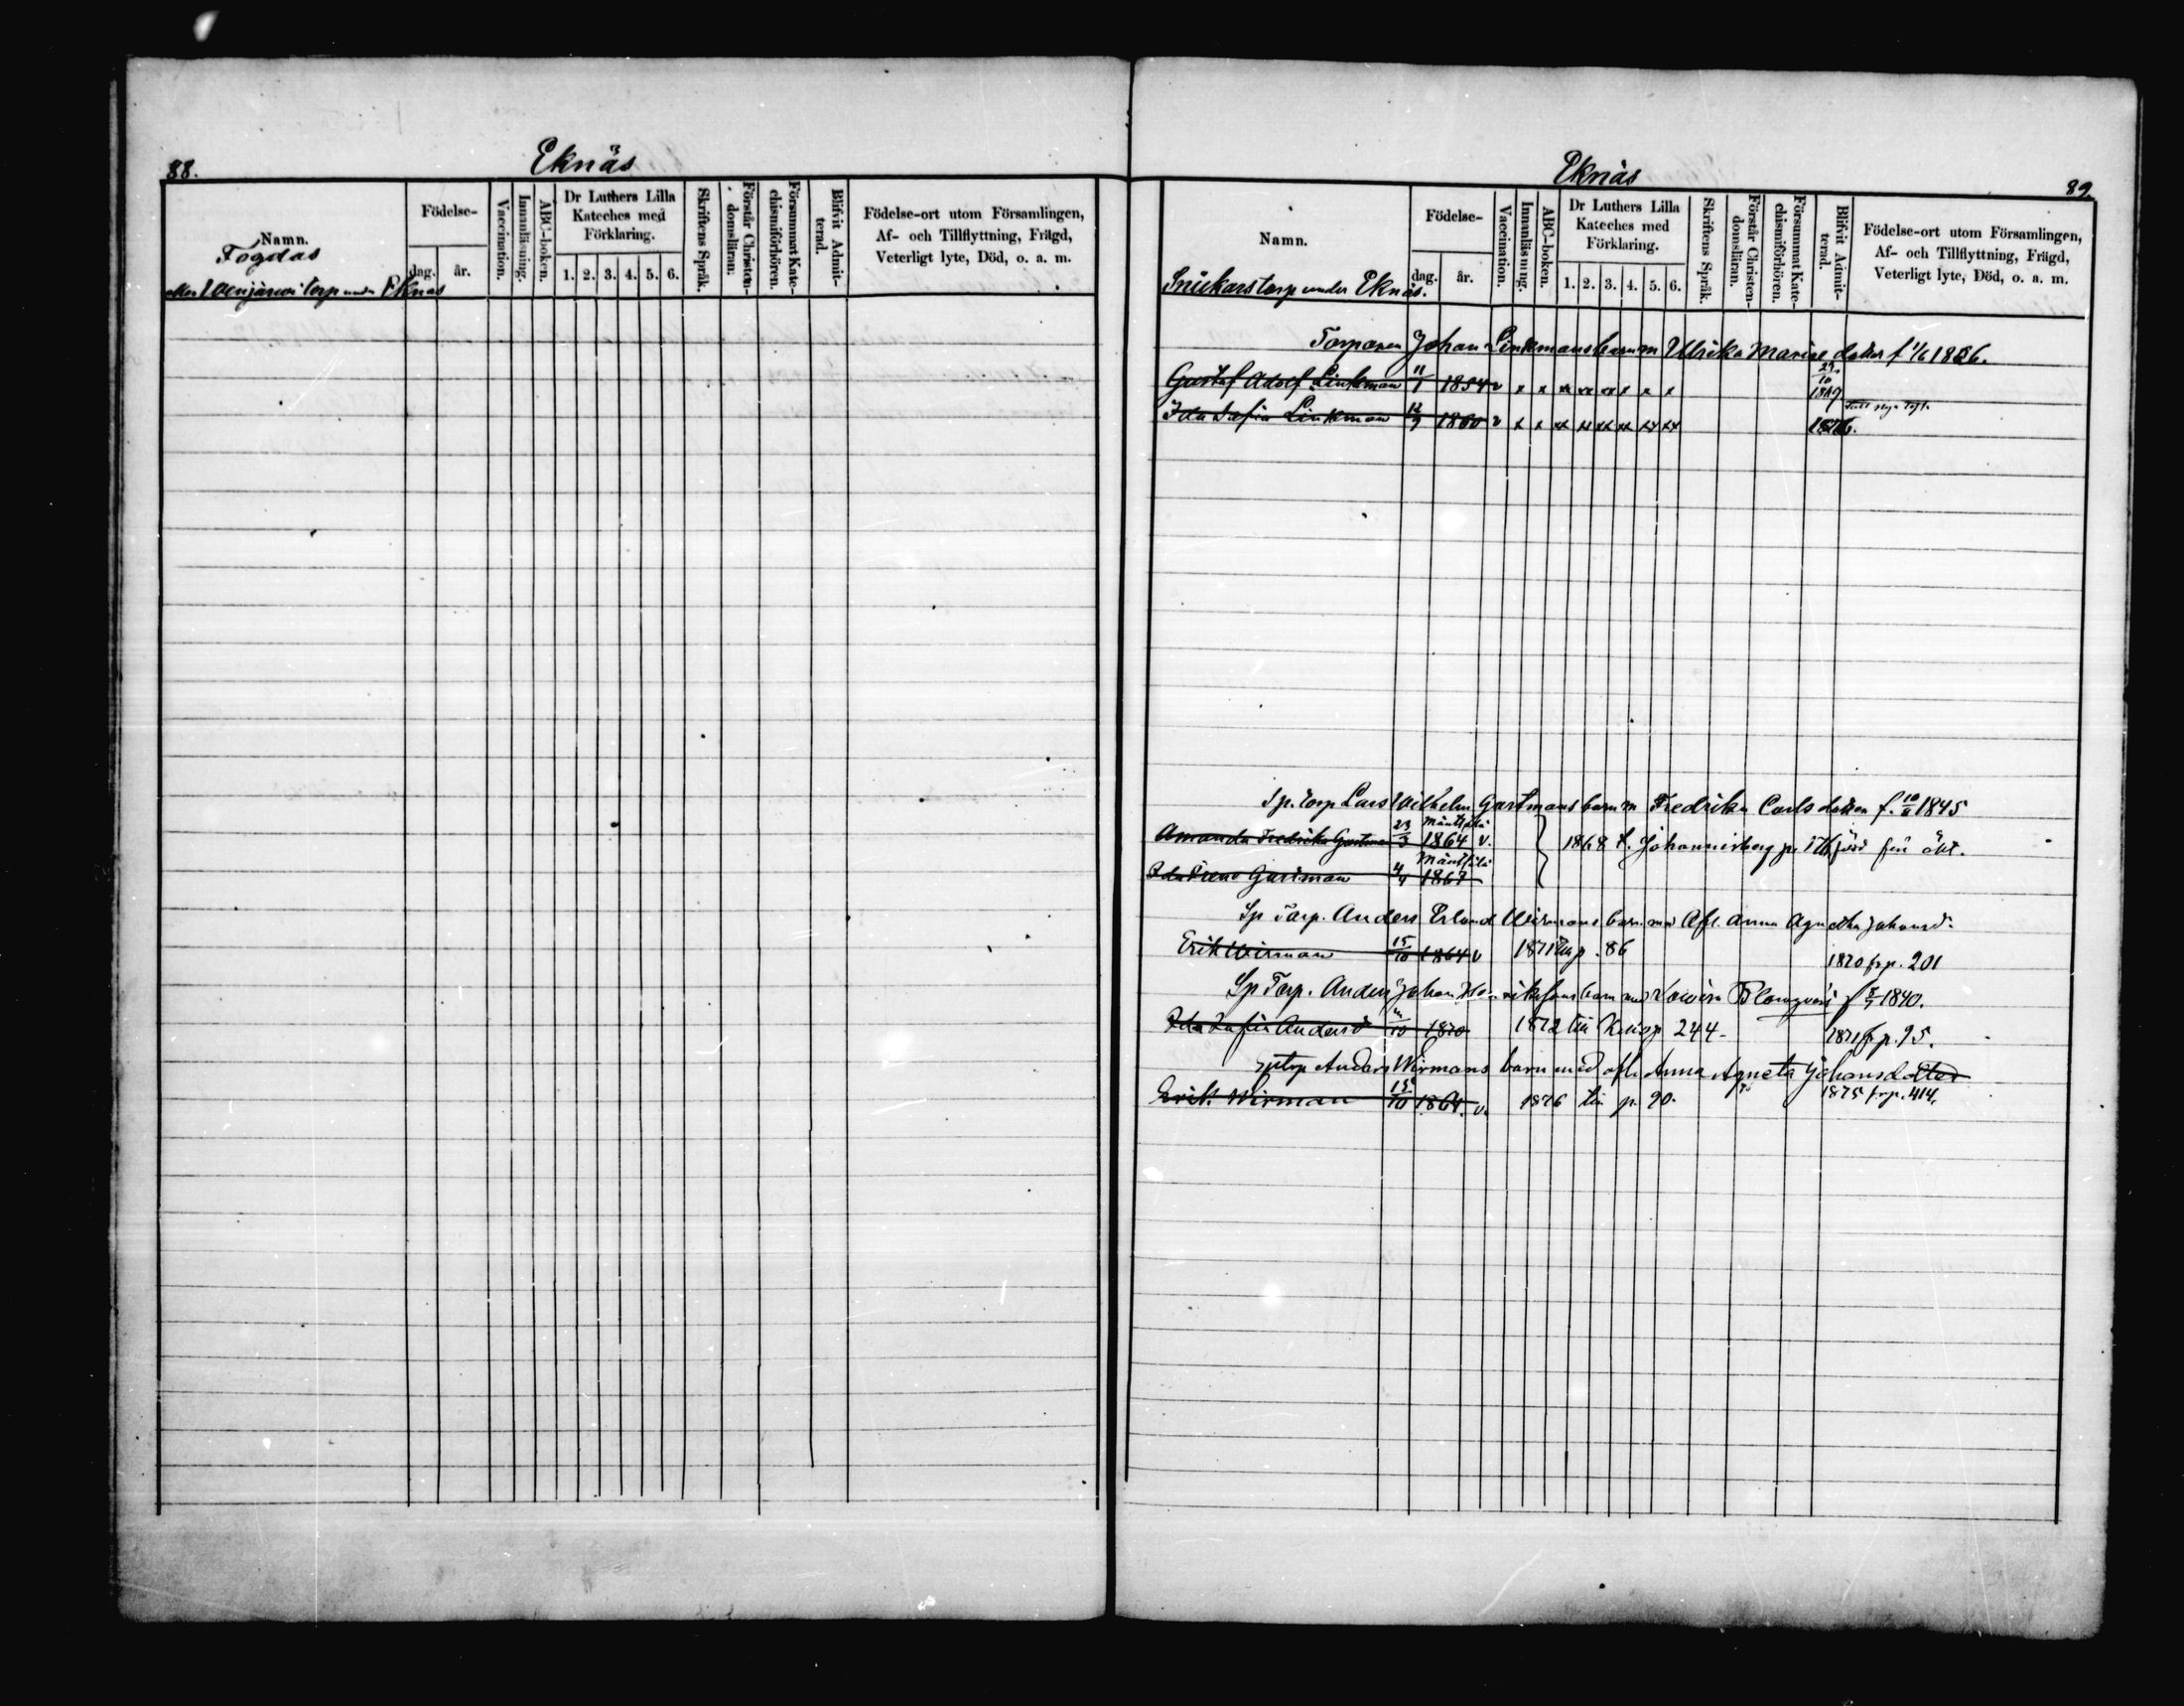 88.
Eknäs
Namn.
Fogdas
eller Wenjärwi torp under Eknäs
Födelse-
dag.
år.
Vaccination.
Innanläsning.
ABC-boken.
Dr Luthers Lilla
Kateches med
Förklaring.
1. 2. 3. 4. 5. 6.
Skriftens Språk.
Förstår Christen-
domsläran.
Försummat Kate-
chismiförhören.
Blifvit Admit-
terad.
Födelse-ort utom Församlingen,
Af- och Tillflyttning, Frägd,
Veterligt lyte, Död, o. a. m.
Eknäs
89.
Namn.
Snickars torp under Eknäs.
Födelse-
dag.
år.
Vaccination.
Innanläsning.
ABC-boken.
Dr Luthers Lilla
Kateches med
Förklaring.
1. 2. 3. 4. 5. 6.
Skriftens Språk.
Förstår Christen-
domsläran.
Försummat Kate-
chismiförhören.
Blifvit Admit-
terad.
Födelse-ort utom Församlingen,
Af- och Tillflyttning, Frägd,
Veterligt lyte, Död, o. a. m.
Torparen Johan Linkmans barn m Ulrika Mariae dotter f 1/6 1826.
Gustaf Adolf Linkman 11/1 1854 v x x xx xx xx x x x 29/10 1869
Ida Sofia Linkman 12/9 1860 v x x xx xx xx xx xx xx 1876.
Sp. torp Lars Wilhelm Gartmans barn m Fredrika Carls dotter f. 10/6 1845
Amanda Fredrika Gartman 23/3 Mäntsälä 1864 v. 1868 t. Johannisberg p.
Ida Irene Gartman 4/4 Mäntsälä 1867
Sp Torp. Anders Erland Wirmans barn med Afl. Anna Agnetha Johansd.
Erik Wirman 15/10 1864 v 1871 till p. 86 1870 fr p. 201
Sp Torp. Anders Johan Henrikssons barn med Lovisa Blomqvist f 8/7 1840.
Ida Sofia Andersd 10 1870 1872 till p 244. 1871 fr p. 95.
sptrp Anders Wirmans barn med afl. Anna Agneta Johansdotter
Erik Wirman 15/10 1864. v. 1876 till p. 90. 1875 fr p. 414.